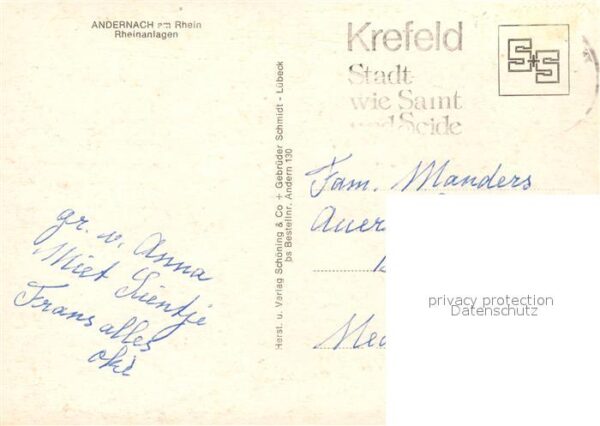 ANDERNACH am Rhein
Rheinanlagen
Krefeld
Stadt
wie Samt
und Seide
S+S
Herst. u. Verlag Schöning & Co + Gebrüder Schmidt - Lübeck
bs Bestellnr. Andern 130
Fam. Manders
Auer
gr. v. Anna
Miet Sientje
Frans alles
oké
privacy protection
Datenschutz